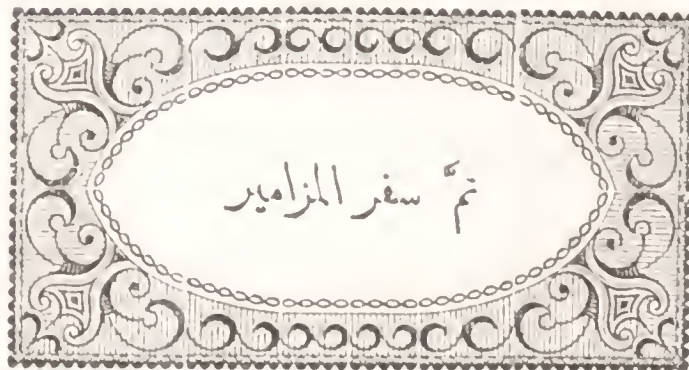 تمَّ سفر المزامير